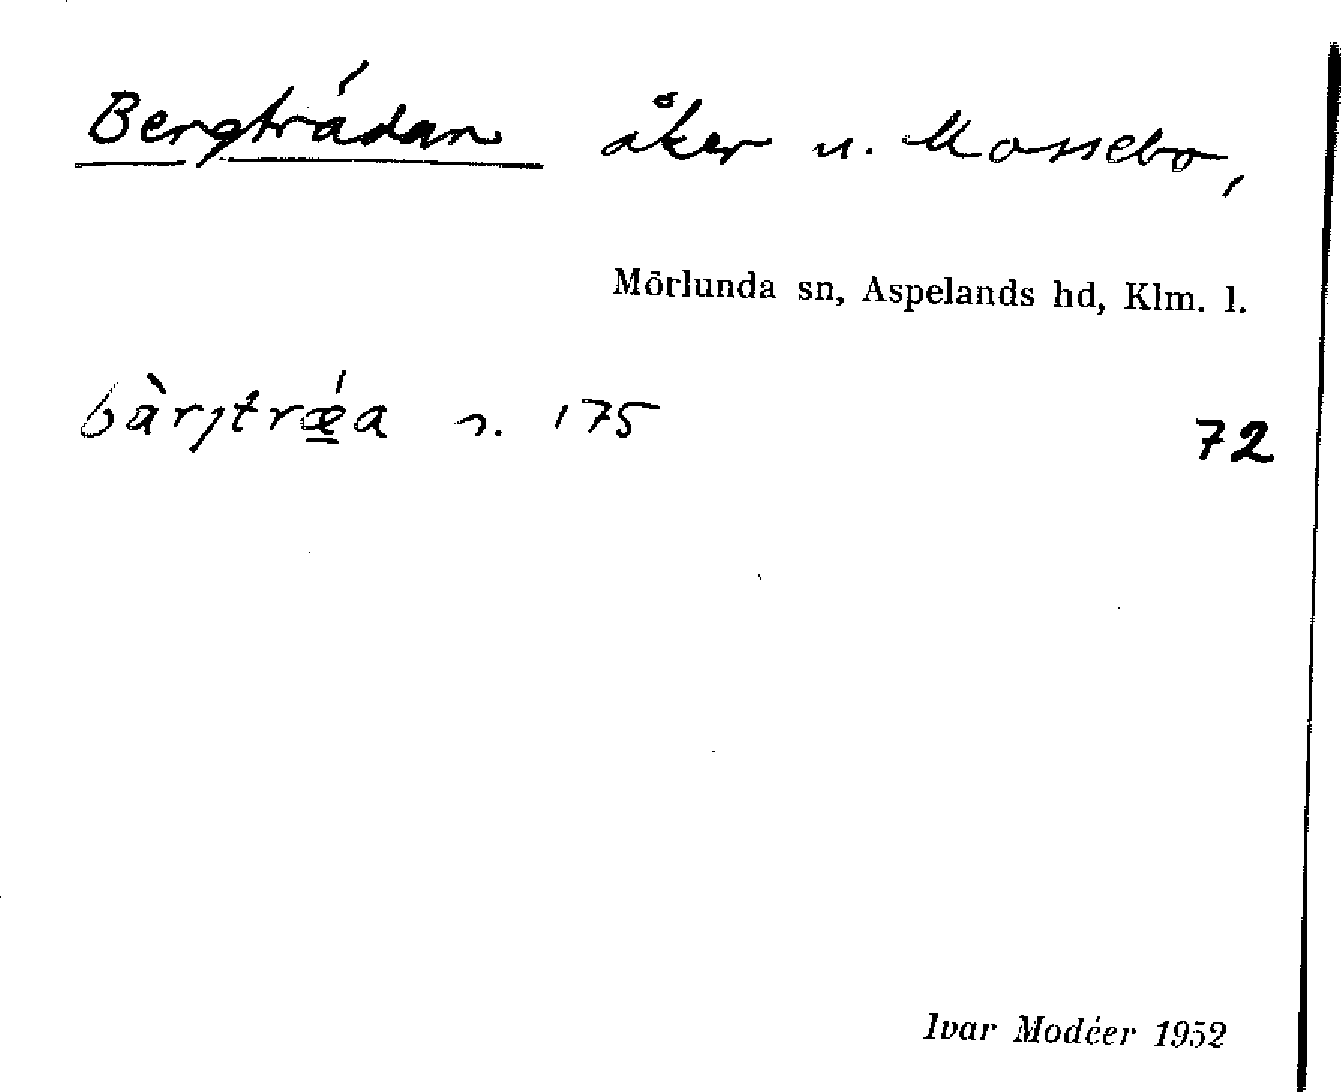 Bergträdan åker u. Mossebo,
Mörlunda sn, Aspelands hd, Klm. l.
bàrjtrǽ̲a s. 175
72
Ivar Modéer 1952